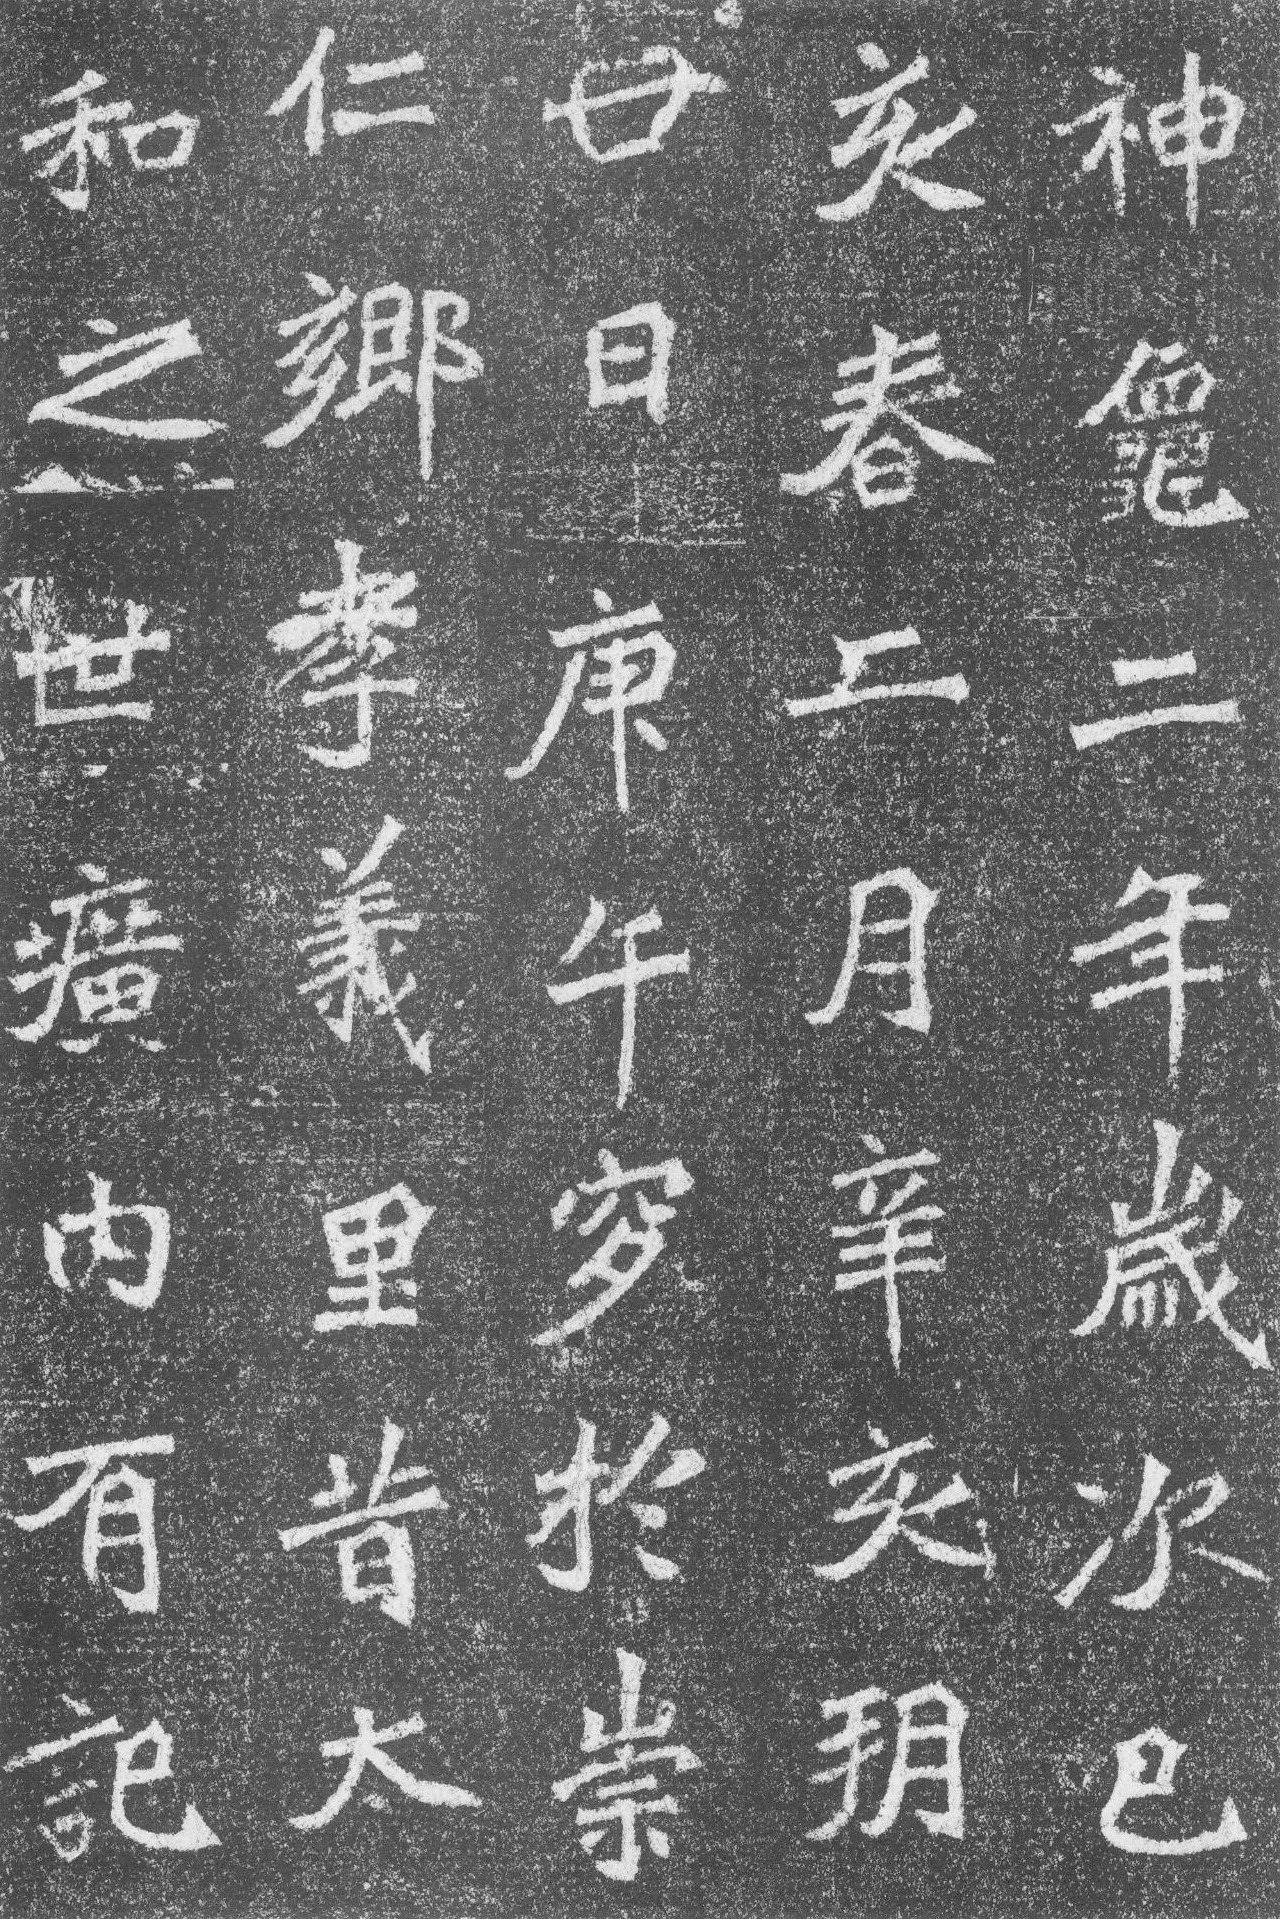 神龜二年歲次己
亥春二月辛亥朔
廿日庚午穸於崇
仁鄉孝義里昔太
和之世壙內有記